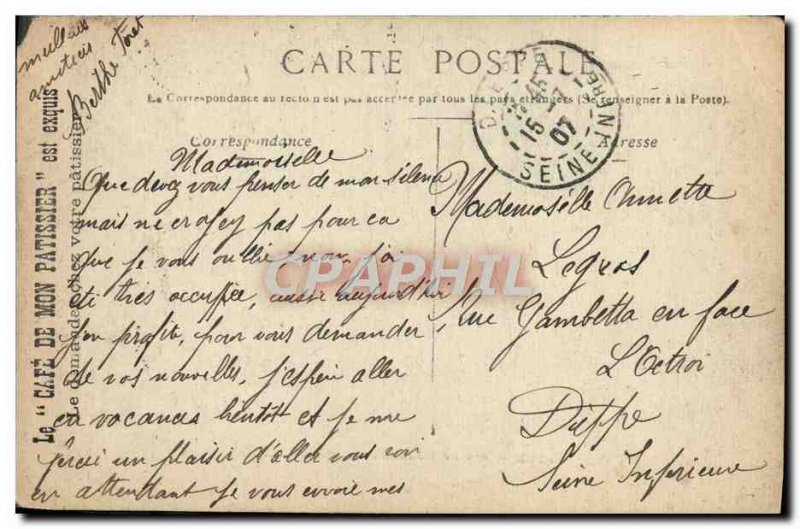 CARTE POSTALE
La Correspondance au recto n'est pas acceptée par tous les pays étrangers (Se renseigner à la Poste).
Correspondance
Adresse
15 -7
07
SEINE INFRE
Mademoiselle
Que devez vous penser de mon silence
mais ne croyez pas pour ca
que je vous oublie non j'ai
ete tres occupée, aussi aujourd'hui
j'en profite pour vous demander
de vos nouvelles, j'espère aller
en vacances bientot et je me
ferai un plaisir d'aller vous voir
en attendant je vous envoie mes
meilleures
amities
Berthe Foret
Mademoiselle Annette
Legros
Rue Gambetta en face
L'Octroi
Dieppe
Seine Inferieure
Le "CAFÉ DE MON PATISSIER" est exquis
Le demander chez votre pâtissier
CPAPHIL.COM